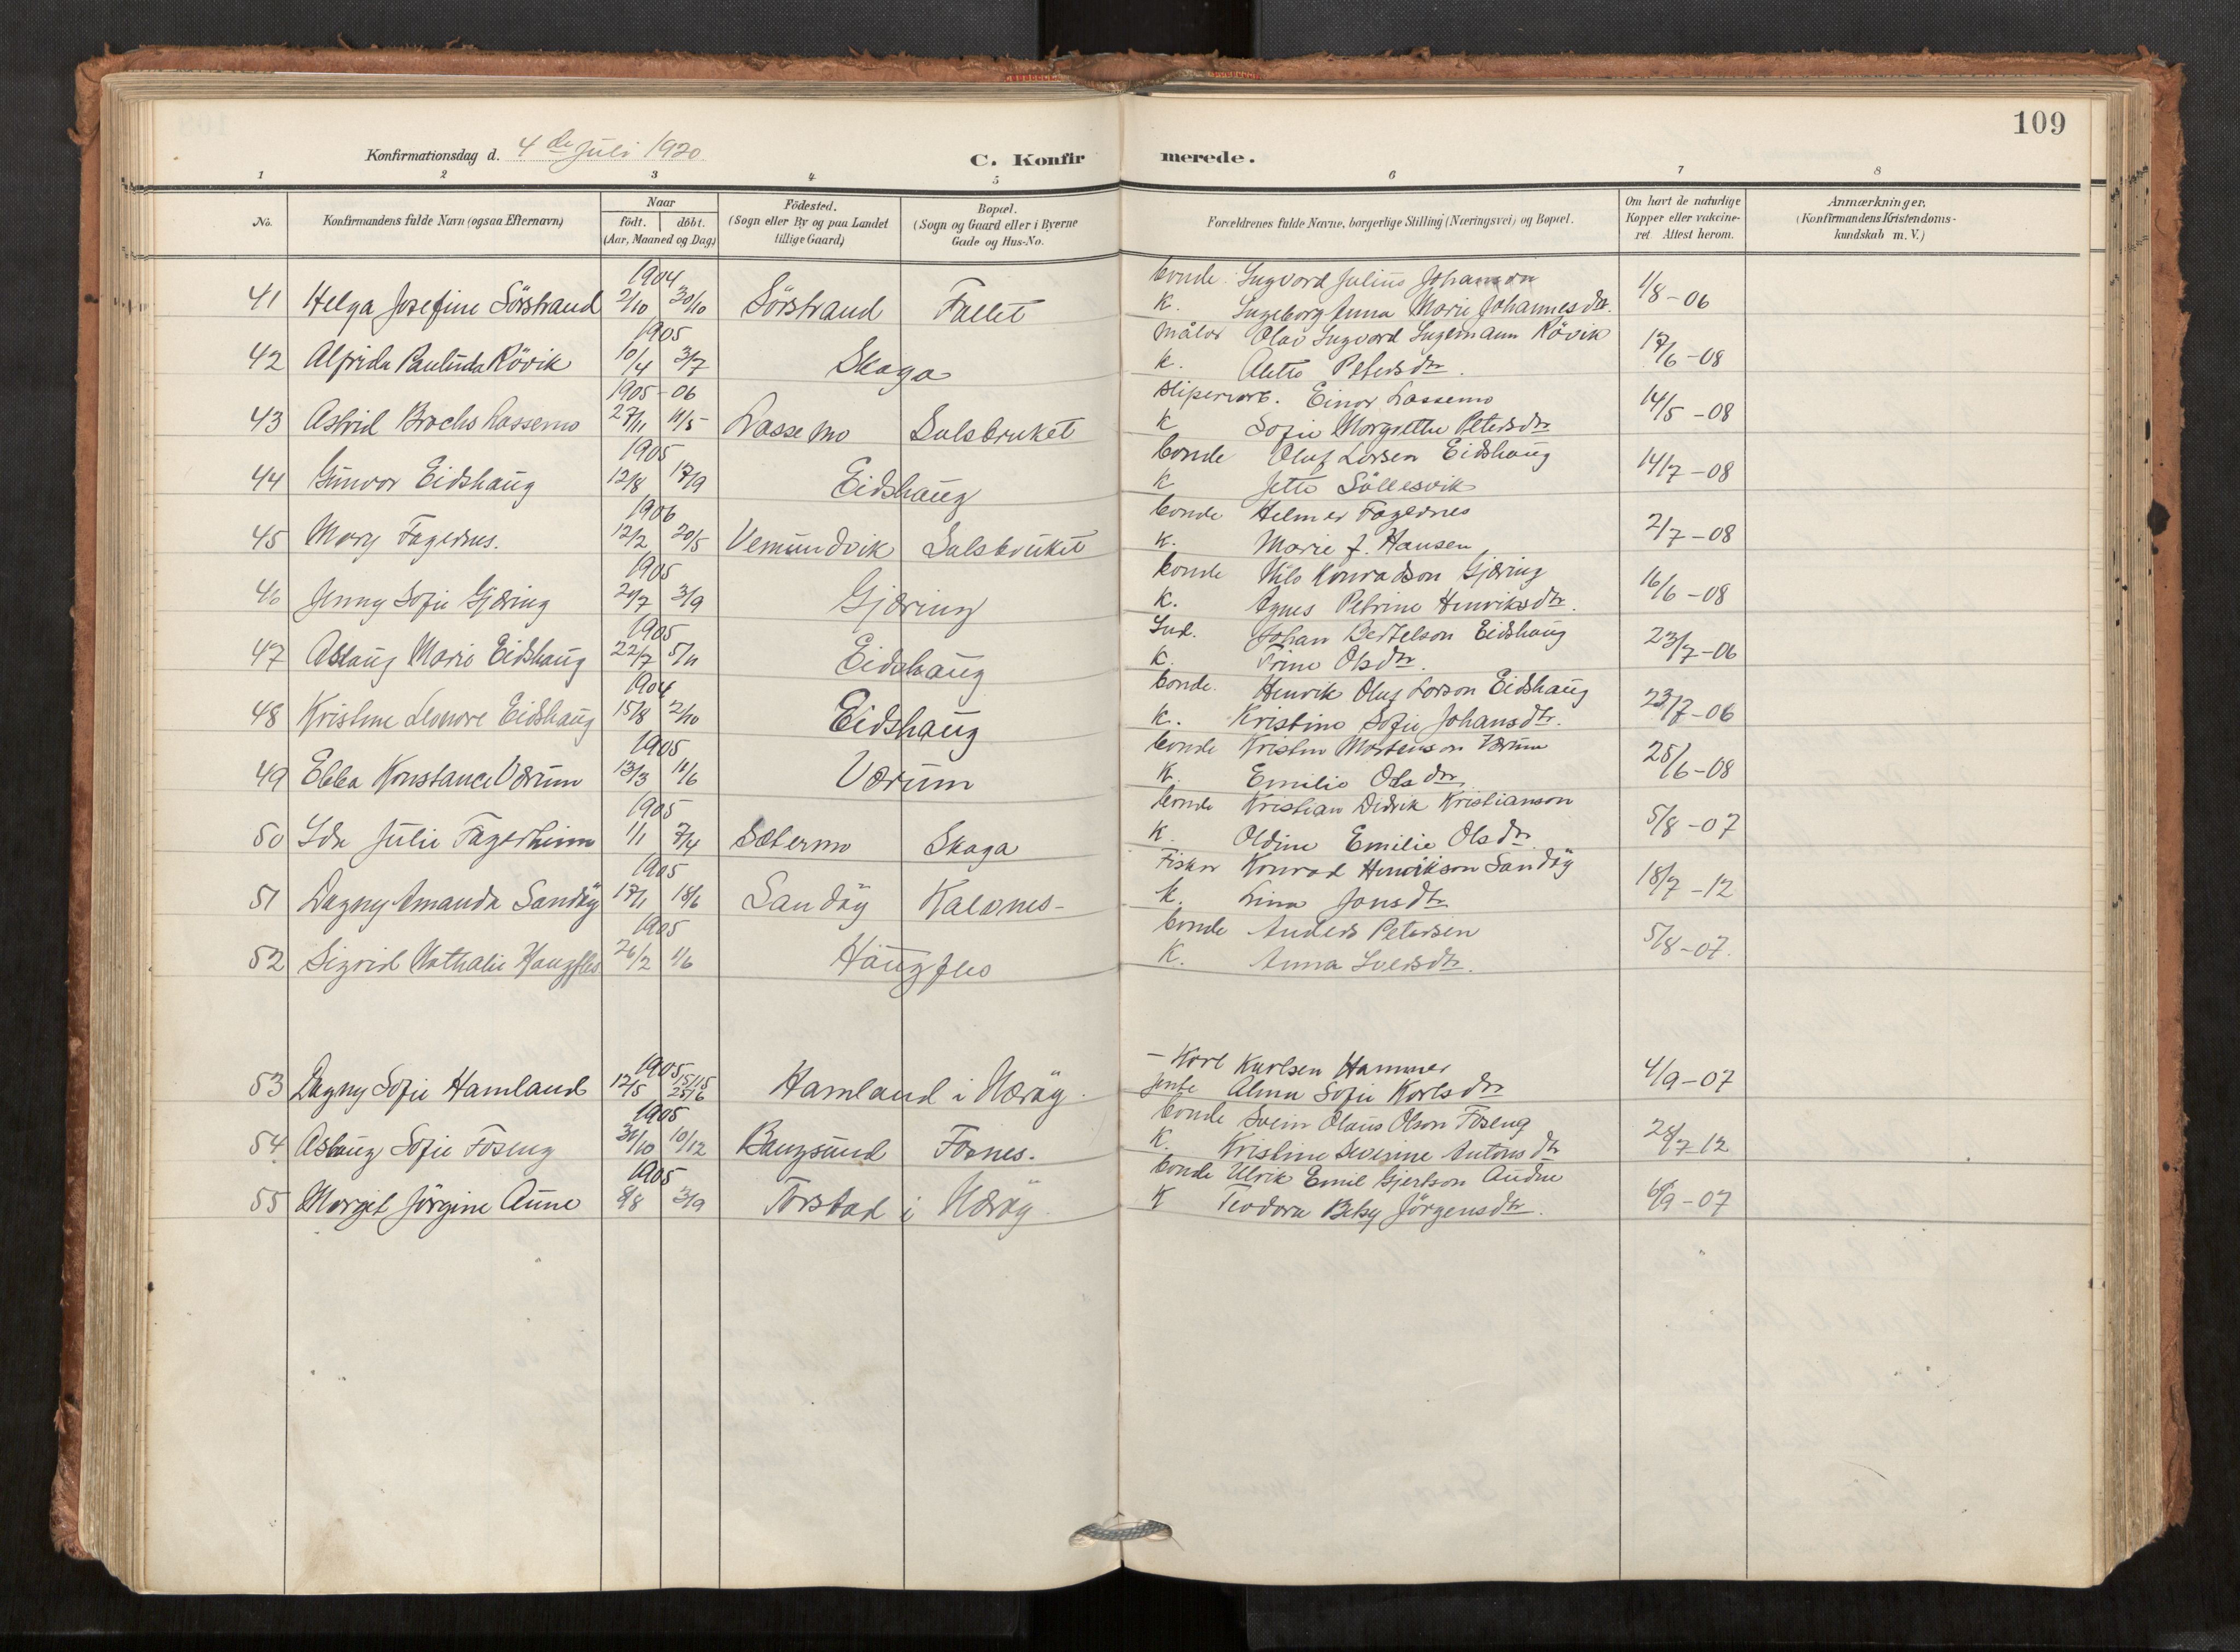 109
Konfirmationsdag d. 4de Juli 1920
C. Konfirmerede.
1 2 3 4 5 6 7 8
No. Konfirmandens fulde Navn (ogsaa Efternavn) Naar födt. döbt. (Aar, Maaned og Dag) Födested. (Sogn eller By og paa Landet tillige Gaard) Bopæl. (Sogn og Gaard eller i Byerne Gade og Hus-No. Forældrenes fulde Navne, borgerlige Stilling (Næringsvei) og Bopæl. Om havt de naturlige Kopper eller vakcineret Attest herom. Anmærkninger. (Konfirmandens Kristendomskundskab m. V.)
1904 bonde Ingvard Julius Johanson
41 Helga Josefine Sörstrand 2/10 30/10 Sörstrand Fallet K. Ingeborg Anna Marie Johannesdtr. 1/8-06
1905 måler Olav Ingvard Ingemann Rövik
42 Alfrida Paulinda Rövik 10/4 3/7 Skaga K. Petersdtr. 17/6-08
1905-06 sliperiarb. Einar Lassemo
43 Astrid Brochs Lassemo 27/11 11/5 Lassemo Salsbruket K Sofie Margrethe Petersdtr 14/5-08
1905 bonde Oluf Larsen Eidshaug
44 Gunvor Eidshaug 12/8 17/9 Eidshaug K Jette Sällesvik 14/7-08
1906 bonde Helmer Fagernes
45 Mary Fagernes. 12/2 20/5 Vemundvik Salsbruket K. Marie J. Hansen 2/7-08
1905 bonde Nils Konradson Gjæring
46 Jenny Sofie Gjæring 20/7 3/9 Gjæring K. Agnes Petrine Henriksdtr. 16/6-08
1905 Ind. Johan Bertelson Eidshaug
47 Aslaug Marie Eidshaug 22/7 5/11 Eidshaug K. Trine Olsdtr. 23/7-06
1904 bonde. Henrik Oluf Larson Eidshaug
48 Kristine Leonore Eidshaug 15/8 2/10 Eidshaug K. Kristine Sofie Johansdtr. 23/7-06
1905 bonde Kristen Mortenson Værum
49 Ebba Konstance Værum 13/3 11/6 Værum K. Emilie Olsdtr. 25/6-08
1905 bonde Kristian Didrik Kristianson
50 Ida Julie Fagerheim 1/1 7/4 Sætermo Skaga K. Oldine Emilie Olsdtr. 5/8-07
1905 Fisker Konrad Henrikson Sandöy
51 Dagny Amanda Sandöy 17/1 18/6 Sandöy Kalvnes- K. Lina Jonsdtr 18/7-12
1905 bonde Anders Petersen
52 Sigrid Nathalie Haugfles 26/2 1/6 Haugfles K. Anna Iversdtr. 5/8-07.
1905 - Karl Karlsen Hammer
53 Dagny Sofie Hamland 12/5 25/6 Hamland i Næröy. jente Alma Sofie Karlsdtr 4/9-07
1905 bonde Svein Olaus Olson Föseng
54 Aslaug Sofie Föseng 31/10 10/12 Bangsund Fornes. K. Kristine Severine Antonsdtr 28/7 12
1905 bonde Ulrik Emil Gjertson Aune
55 Margit Jörgine Aune 8/8 3/9 Torstad i Næröy. K Teodora Betsy Jörgensdtr. 6/9-07